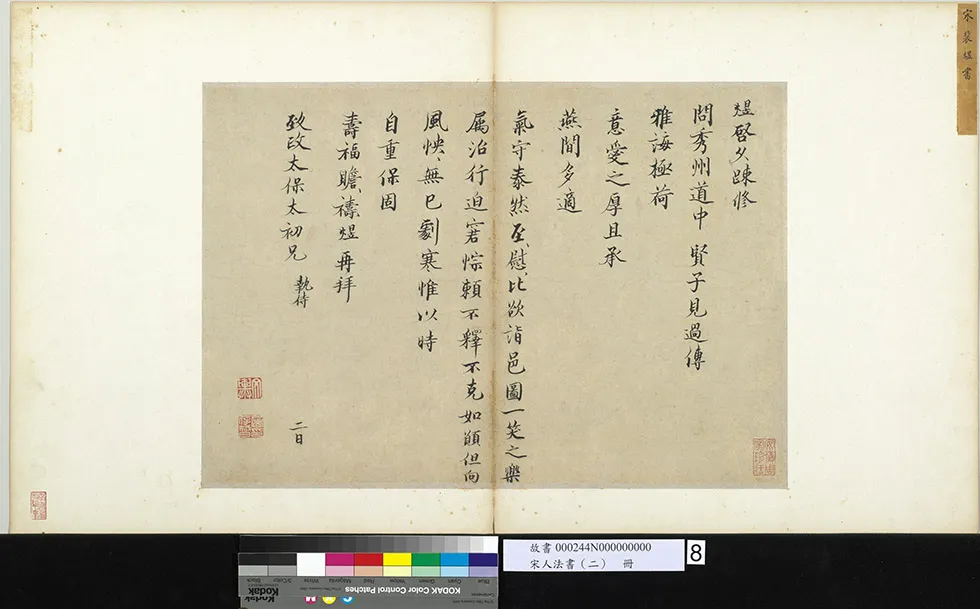 宋裴煜書
煜啓久疎修
問秀州道中 賢子見過傳
雅誨極荷
意愛之厚且承
燕閒多適
氣守泰然至慰比欲詣邑圖一笑之樂
属治行迫窘悰賴不釋不克如頋但向
風怏無已劇寒惟以時
自重保固
壽福瞻禱煜再拜
致政太保太初兄 執侍
二日
故書 000244N000000000
宋人法書(二) 冊
8
KODAK Color Control Patches
Kodak
Blue
Cyan
Green
Yellow
Red
Magenta
White
3/Color
Black